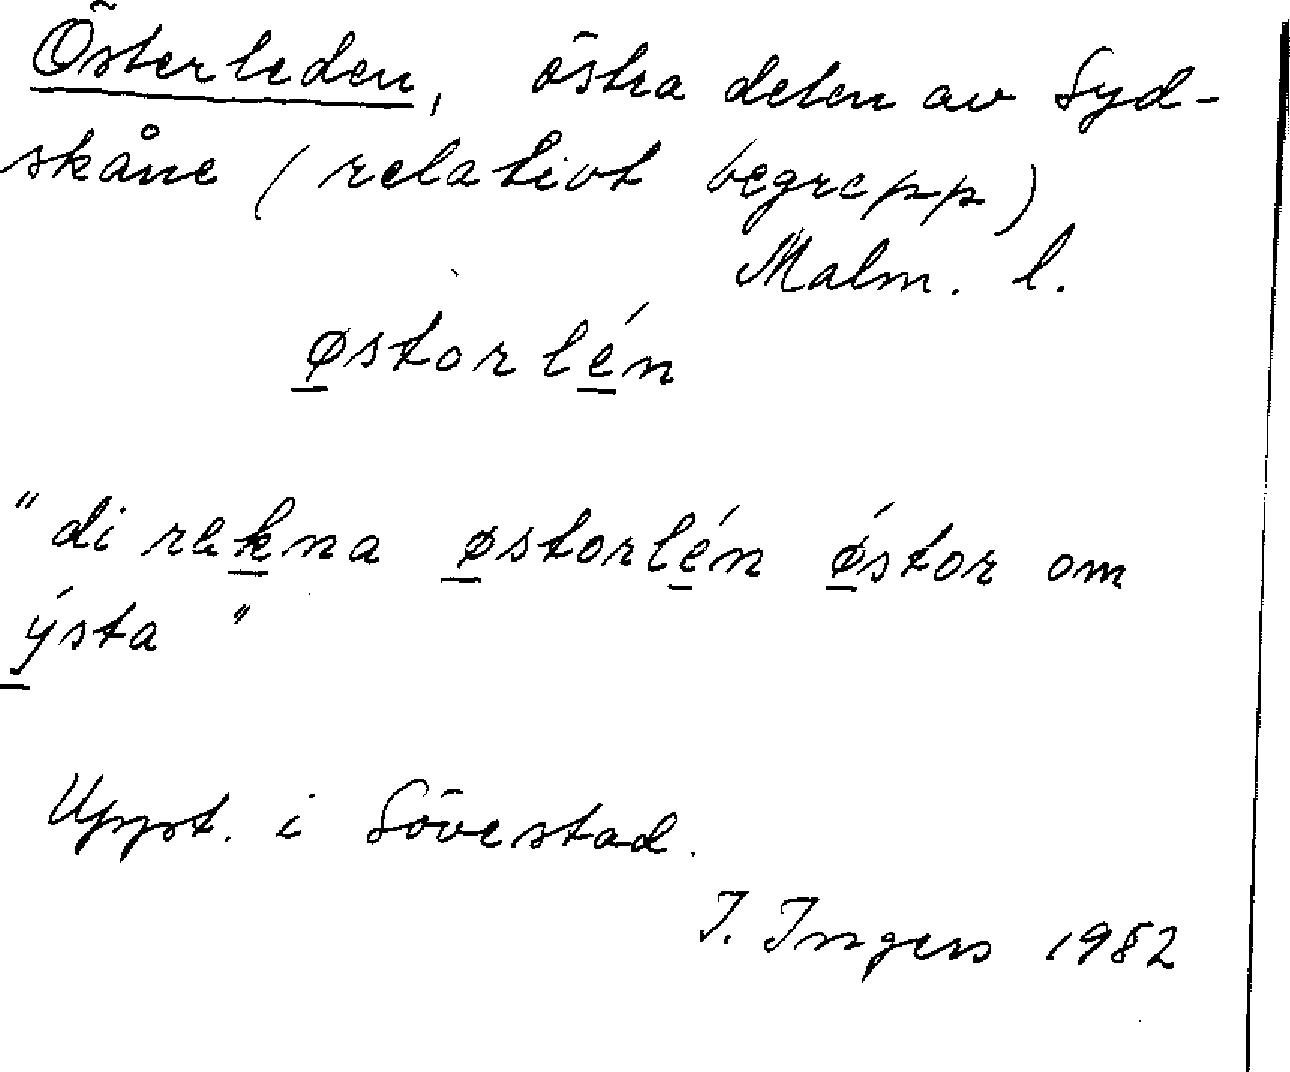 Österleden, östra delen av Syd-
skåne (relativt begrepp)
Malm. l.
østorlén
"di rekna østorlén østor om
ýsta"
Uppt. i Sövestad.
I. Ingers 1982